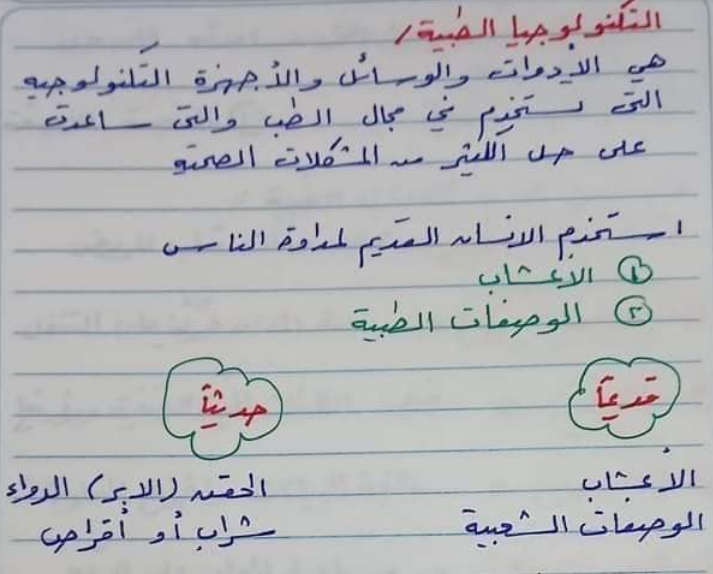 التكنولوجيا الطبية /
هي الأدوات والوسائل والأجهزة التكنولوجيه
التى تستخدم في مجال الطب والتى ساعدت
على حل الكثير من المشكلات الصحية
استخدم الانسان القديم لمداوة الناس
① الأعشاب
② الوصفات الطبية
قديماً
حديثاً
الأعشاب
الحقن (الابر) الدواء
الوصفات الشعبية
شراب أو أقراص